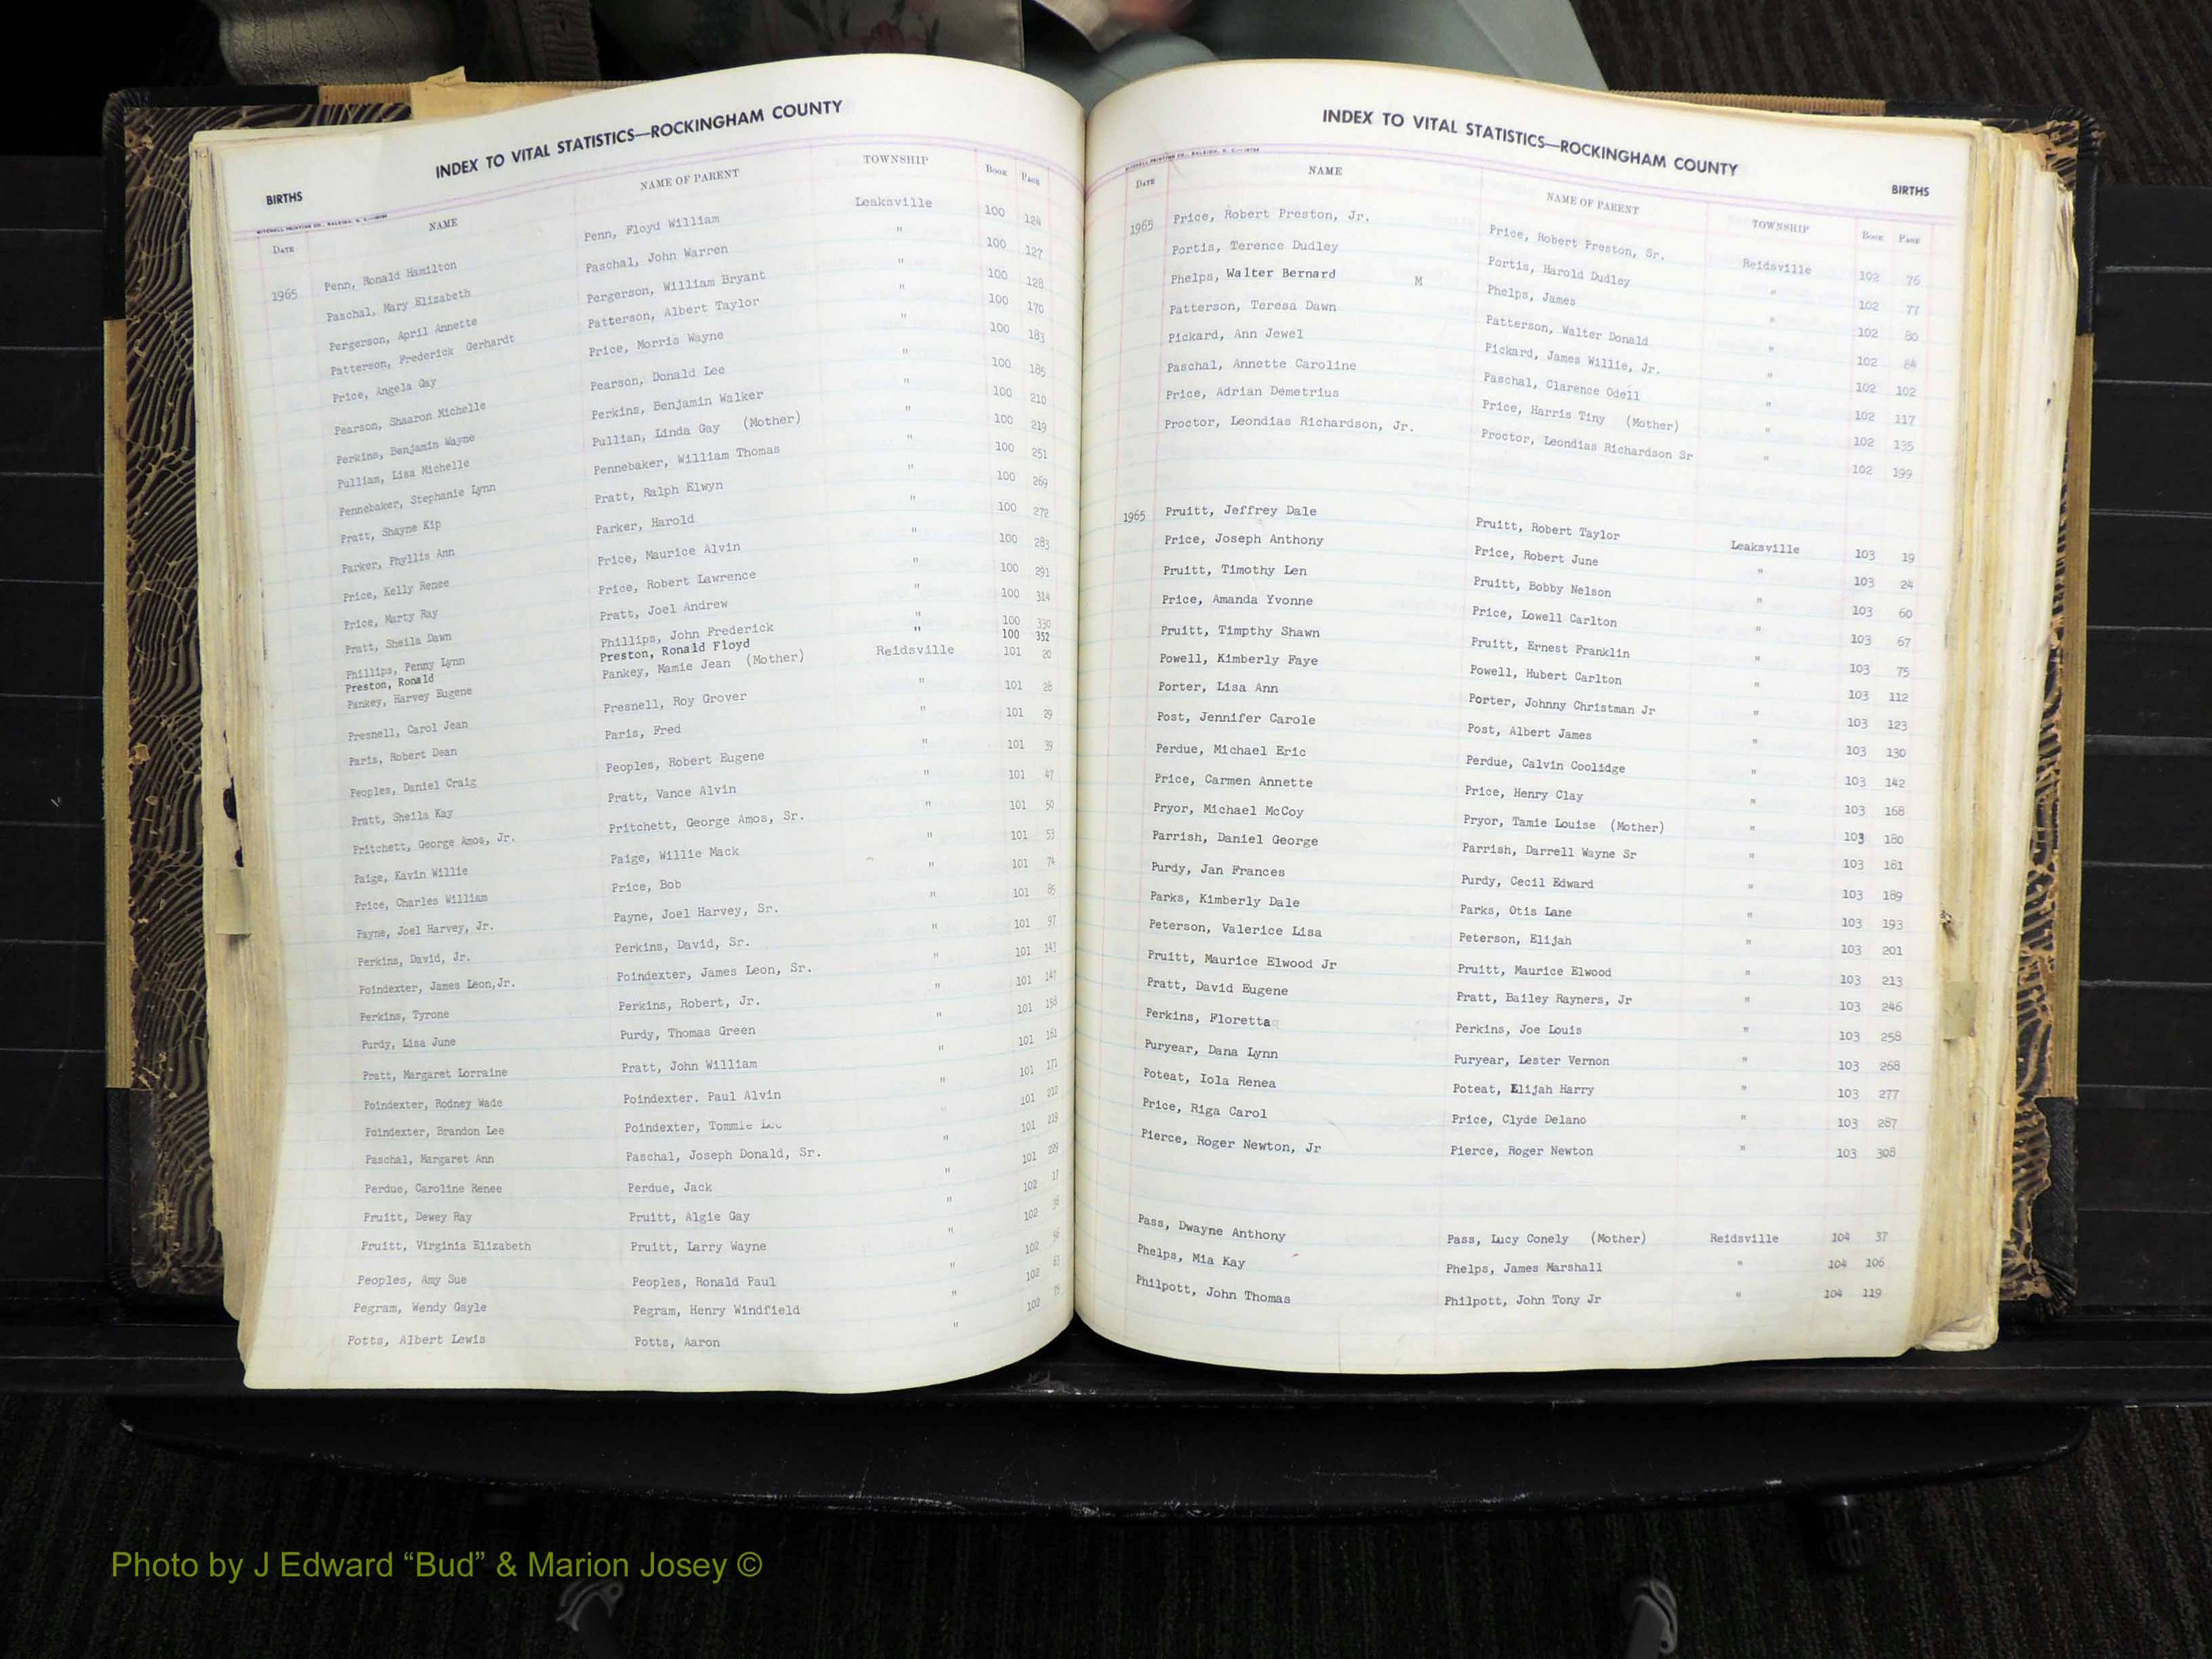 INDEX TO VITAL STATISTICS—ROCKINGHAM COUNTY
BIRTHS
MITCHELL PRINTING CO., RALEIGH, N. C.
DATE NAME NAME OF PARENT TOWNSHIP BOOK PAGE
1965 Penn, Ronald Hamilton Penn, Floyd William Leaksville 100 124
Paschal, Mary Elizabeth Paschal, John Warren " 100 127
Pergerson, April Annette Pergerson, William Bryant " 100 128
Patterson, Frederick Gerhardt Patterson, Albert Taylor " 100 170
Price, Angela Gay Price, Morris Wayne " 100 183
Pearson, Shaaron Michelle Pearson, Donald Lee " 100 185
Perkins, Benjamin Wayne Perkins, Benjamin Walker " 100 210
Pulliam, Lisa Michelle Pullian, Linda Gay (Mother) " 100 219
Pennebaker, Stephanie Lynn Pennebaker, William Thomas " 100 251
Pratt, Shayne Kip Pratt, Ralph Elwyn " 100 269
Parker, Phyllis Ann Parker, Harold " 100 272
Price, Kelly Renee Price, Maurice Alvin " 100 283
Price, Marty Ray Price, Robert Lawrence " 100 291
Pratt, Sheila Dawn Pratt, Joel Andrew " 100 314
Phillips, Penny Lynn Phillips, John Frederick " 100 330
Preston, Ronald Preston, Ronald Floyd " 100 352
Pankey, Harvey Eugene Pankey, Mamie Jean (Mother) Reidsville 101 20
Presnell, Carol Jean Presnell, Roy Grover " 101 28
Paris, Robert Dean Paris, Fred " 101 29
Peoples, Daniel Craig Peoples, Robert Eugene " 101 39
Pratt, Sheila Kay Pratt, Vance Alvin " 101 47
Pritchett, George Amos, Jr. Pritchett, George Amos, Sr. " 101 50
Paige, Kavin Willie Paige, Willie Mack " 101 53
Price, Charles William Price, Bob " 101 74
Payne, Joel Harvey, Jr. Payne, Joel Harvey, Sr. " 101 85
Perkins, David, Jr. Perkins, David, Sr. " 101 97
Poindexter, James Leon,Jr. Poindexter, James Leon, Sr. " 101 141
Perkins, Tyrone Perkins, Robert, Jr. " 101 147
Purdy, Lisa June Purdy, Thomas Green " 101 158
Pratt, Margaret Lorraine Pratt, John William " 101 161
Poindexter, Rodney Wade Poindexter. Paul Alvin " 101 171
Poindexter, Brandon Lee Poindexter, Tommie Lee " 101 212
Paschal, Margaret Ann Paschal, Joseph Donald, Sr. " 101 219
Perdue, Caroline Renee Perdue, Jack " 101 229
Pruitt, Dewey Ray Pruitt, Algie Gay " 102 17
Pruitt, Virginia Elizabeth Pruitt, Larry Wayne " 102
Peoples, Amy Sue Peoples, Ronald Paul " 102
Pegram, Wendy Gayle Pegram, Henry Windfield " 102 63
Potts, Albert Lewis Potts, Aaron " 102 75
INDEX TO VITAL STATISTICS—ROCKINGHAM COUNTY
BIRTHS
MITCHELL PRINTING CO., RALEIGH, N. C.
DATE NAME NAME OF PARENT TOWNSHIP BOOK PAGE
1965 Price, Robert Preston, Jr. Price, Robert Preston, Sr. Reidsville 102 76
Portis, Terence Dudley Portis, Harold Dudley " 102 77
Phelps, Walter Bernard M Phelps, James " 102 80
Patterson, Teresa Dawn Patterson, Walter Donald " 102 84
Pickard, Ann Jewel Pickard, James Willie, Jr. " 102 102
Paschal, Annette Caroline Paschal, Clarence Odell " 102 117
Price, Adrian Demetrius Price, Harris Tiny (Mother) " 102 135
Proctor, Leondias Richardson, Jr. Proctor, Leondias Richardson Sr " 102 199
1965 Pruitt, Jeffrey Dale Pruitt, Robert Taylor Leaksville 103 19
Price, Joseph Anthony Price, Robert June " 103 24
Pruitt, Timothy Len Pruitt, Bobby Nelson " 103 60
Price, Amanda Yvonne Price, Lowell Carlton " 103 67
Pruitt, Timpthy Shawn Pruitt, Ernest Franklin " 103 75
Powell, Kimberly Faye Powell, Hubert Carlton " 103 112
Porter, Lisa Ann Porter, Johnny Christman Jr " 103 123
Post, Jennifer Carole Post, Albert James " 103 130
Perdue, Michael Eric Perdue, Calvin Coolidge " 103 142
Price, Carmen Annette Price, Henry Clay " 103 168
Pryor, Michael McCoy Pryor, Tamie Louise (Mother) " 103 180
Parrish, Daniel George Parrish, Darrell Wayne Sr " 103 181
Purdy, Jan Frances Purdy, Cecil Edward " 103 189
Parks, Kimberly Dale Parks, Otis Lane " 103 193
Peterson, Valerice Lisa Peterson, Elijah " 103 201
Pruitt, Maurice Elwood Jr Pruitt, Maurice Elwood " 103 213
Pratt, David Eugene Pratt, Bailey Rayners, Jr " 103 246
Perkins, Floretta Perkins, Joe Louis " 103 258
Puryear, Dana Lynn Puryear, Lester Vernon " 103 268
Poteat, Iola Renea Poteat, Elijah Harry " 103 277
Price, Riga Carol Price, Clyde Delano " 103 287
Pierce, Roger Newton, Jr Pierce, Roger Newton " 103 308
Pass, Dwayne Anthony Pass, Lucy Conely (Mother) Reidsville 104 37
Phelps, Mia Kay Phelps, James Marshall " 104 106
Philpott, John Thomas Philpott, John Tony Jr " 104 119
Photo by J Edward “Bud” & Marion Josey ©